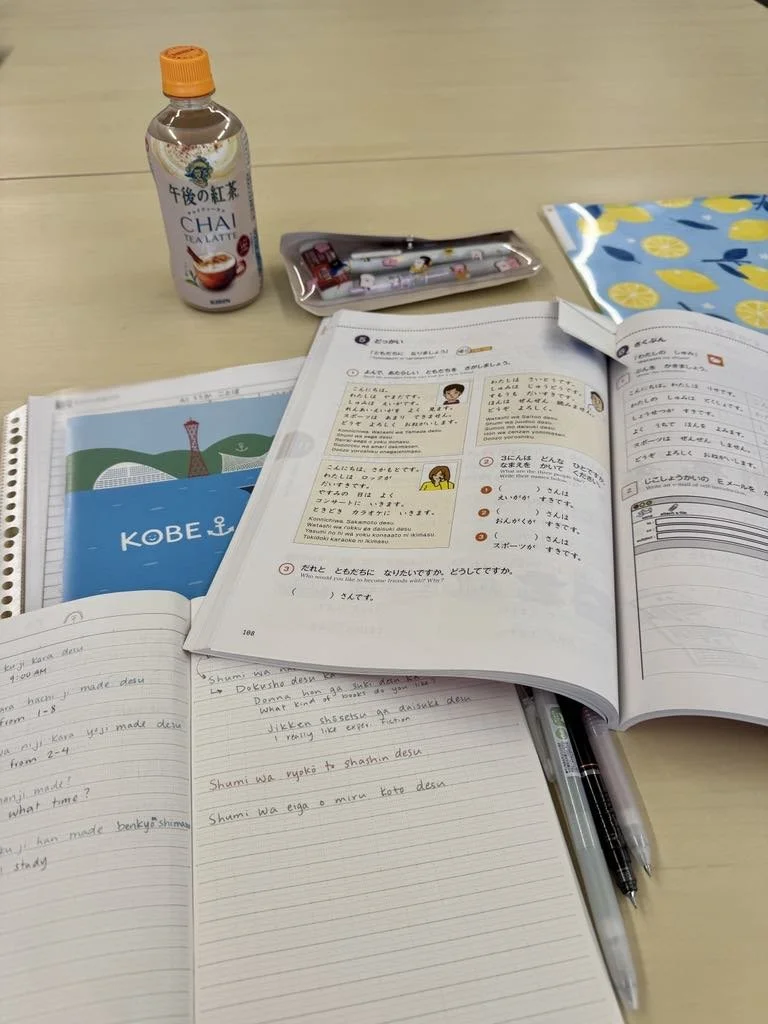 午後の紅茶
CHAI
TEA LATTE
KIRIN
KOBE
5 どっかい
「ともだちに なりましょう」
1 よんで、あたらしい ともだちを さがしましょう。
こんにちは。
わたしは やまだです。
しゅみは えいがです。
れんあいえいがを よく 見ます。
スポーツは あまり できません。
どうぞ よろしく おねがいします。
Konnichiwa. Watashi wa Yamada desu.
Shumi wa eega desu.
Ren'ai-eega o yoku mimasu.
Supootsu wa amari dekimasen.
Doozo yoroshiku onegaishimasu.
わたしは さいとうです。
しゅみは じゅうどうです。
すもうも だいすきです。
ほんは ぜんぜん 読みません。
どうぞ よろしく。
Watashi wa Saitoo desu.
Shumi wa juudoo desu.
Sumoo mo daisuki desu.
Hon wa zenzen yomimasen.
Doozo yoroshiku.
こんにちは。さかもとです。
わたしは ロックが
だいすきです。
やすみの 日は よく
コンサートに いきます。
ときどき カラオケに いきます。
Konnichiwa. Sakamoto desu.
Watashi wa rokku ga daisuki desu.
Yasumi no hi wa yoku konsaato ni ikimasu.
Tokidoki karaoke ni ikimasu.
2 3にんは どんな ひとですか。
なまえを かいて ください。
What are the three people like?
Write their names below.
1 ( ) さんは
えいがが すきです。
2 ( ) さんは
おんがくが すきです。
3 ( ) さんは
スポーツが すきです。
3 だれと ともだちに なりたいですか。どうしてですか。
Who would you like to become friends with? Why?
( ) さんです。
108
6 さくぶん
「わたしの しゅみ」
1 ぶんを かきましょう。
こんにちは。わたしは
わたしの しゅみは どくしょです。
しょうせつが すきです。
よく うちで ほんを よみます。
スポーツは ぜんぜん しません。
どうぞ よろしく おねがいします。
2 じこしょうかいの Eメールを
Write an e-mail of self-introduction.
kuji kara desu
9:00 AM
kara hachi ji made desu
from 1-8
wa niji kara yoji made desu
from 2-4
nanji made?
what time?
ku ji han made benkyō shimasu
i study
Shumi wa
Dokusho desu ka
Donna hon ga suki desu ka
What kind of books do you like?
Jikken shōsetsu ga daisuki desu
I really like exper. fiction
Shumi wa ryokō to shashin desu
Shumi wa eiga o miru koto desu